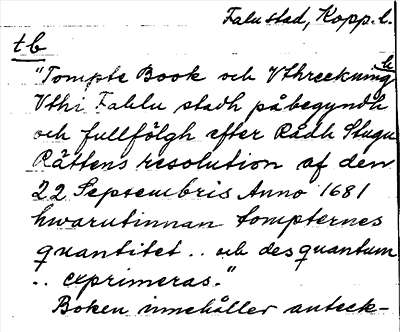 Falu stad, Kopp. l.
tb
"Tompte Book och Vthreckning
Vthi Fahlu stadh påbegyndh
och fullfölgh efter Rådh Stugu
Rättens resolution af den
22 Septembris Anno 1681
hwarutinnan tompternes
quantitet .. och des quantum
.. exprimeras."
Boken innehåller anteck-